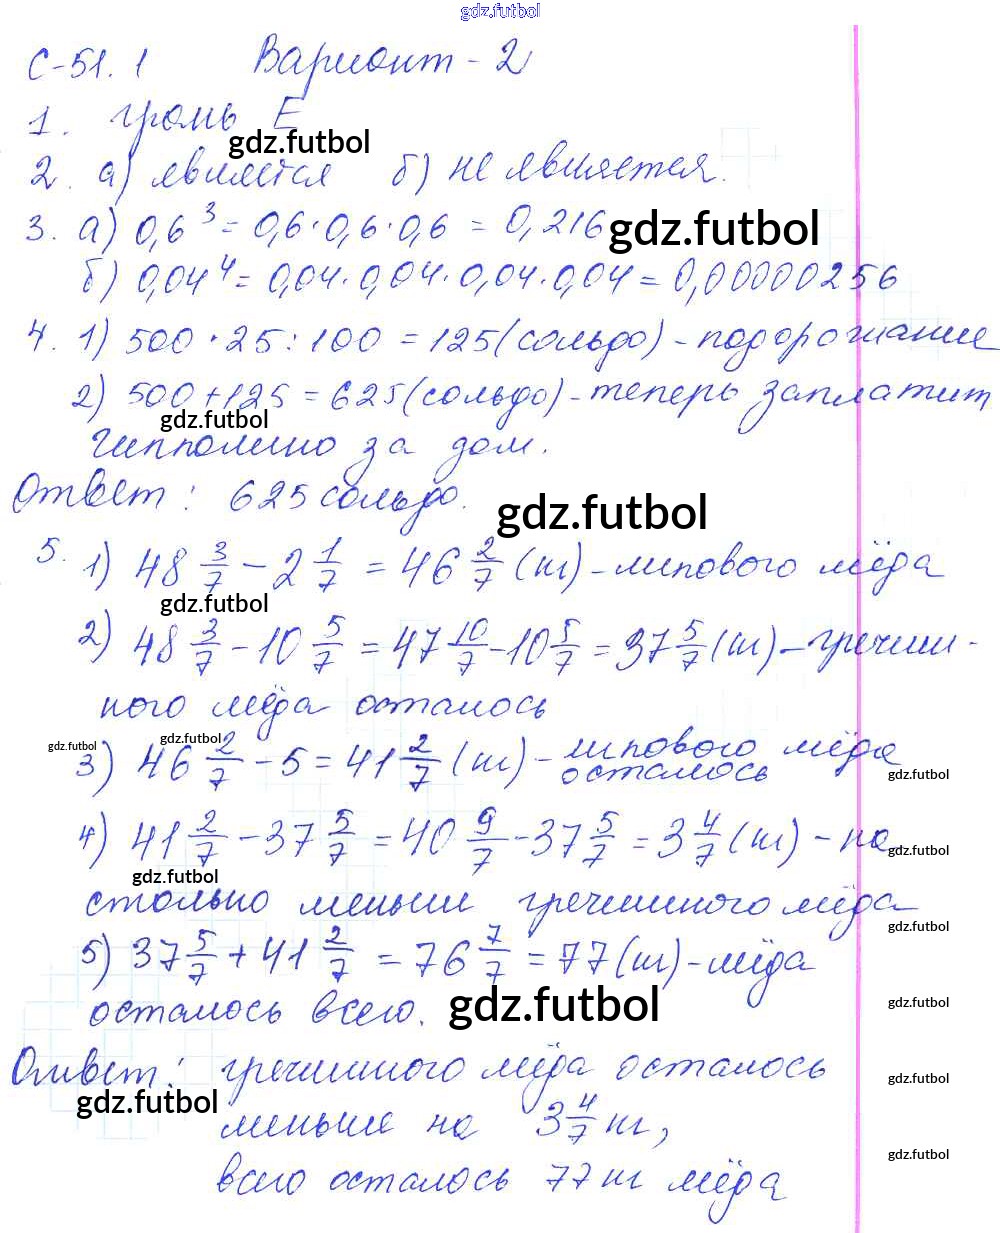 gdz.futbol
С-51.1 Вариант-2
1. грань Е
gdz.futbol
2. а) является б) не является.
3. а) 0,6³ = 0,6·0,6·0,6 = 0,216
gdz.futbol
б) 0,04⁴ = 0,04·0,04·0,04·0,04 = 0,00000256
4. 1) 500·25:100 = 125 (сольдо) - подорожание
2) 500+125 = 625 (сольдо) - теперь заплатит
gdz.futbol
Чипполино за дом.
Ответ: 625 сольдо.
gdz.futbol
5. 1) 48 3/7 - 2 1/7 = 46 2/7 (кг) - липового мёда
gdz.futbol
2) 48 3/7 - 10 5/7 = 47 10/7 - 10 5/7 = 37 5/7 (кг) - гречиш-
ного мёда осталось
gdz.futbol
gdz.futbol
3) 46 2/7 - 5 = 41 2/7 (кг) - липового мёда
осталось
gdz.futbol
4) 41 2/7 - 37 5/7 = 40 9/7 - 37 5/7 = 3 4/7 (кг) - на
gdz.futbol
gdz.futbol
столько меньше гречишного мёда
gdz.futbol
5) 37 5/7 + 41 2/7 = 76 7/7 = 77 (кг) - мёда
осталось всего.
gdz.futbol
gdz.futbol
Ответ: гречишного мёда осталось
gdz.futbol
gdz.futbol
меньше на 3 4/7 кг,
gdz.futbol
всего осталось 77 кг мёда